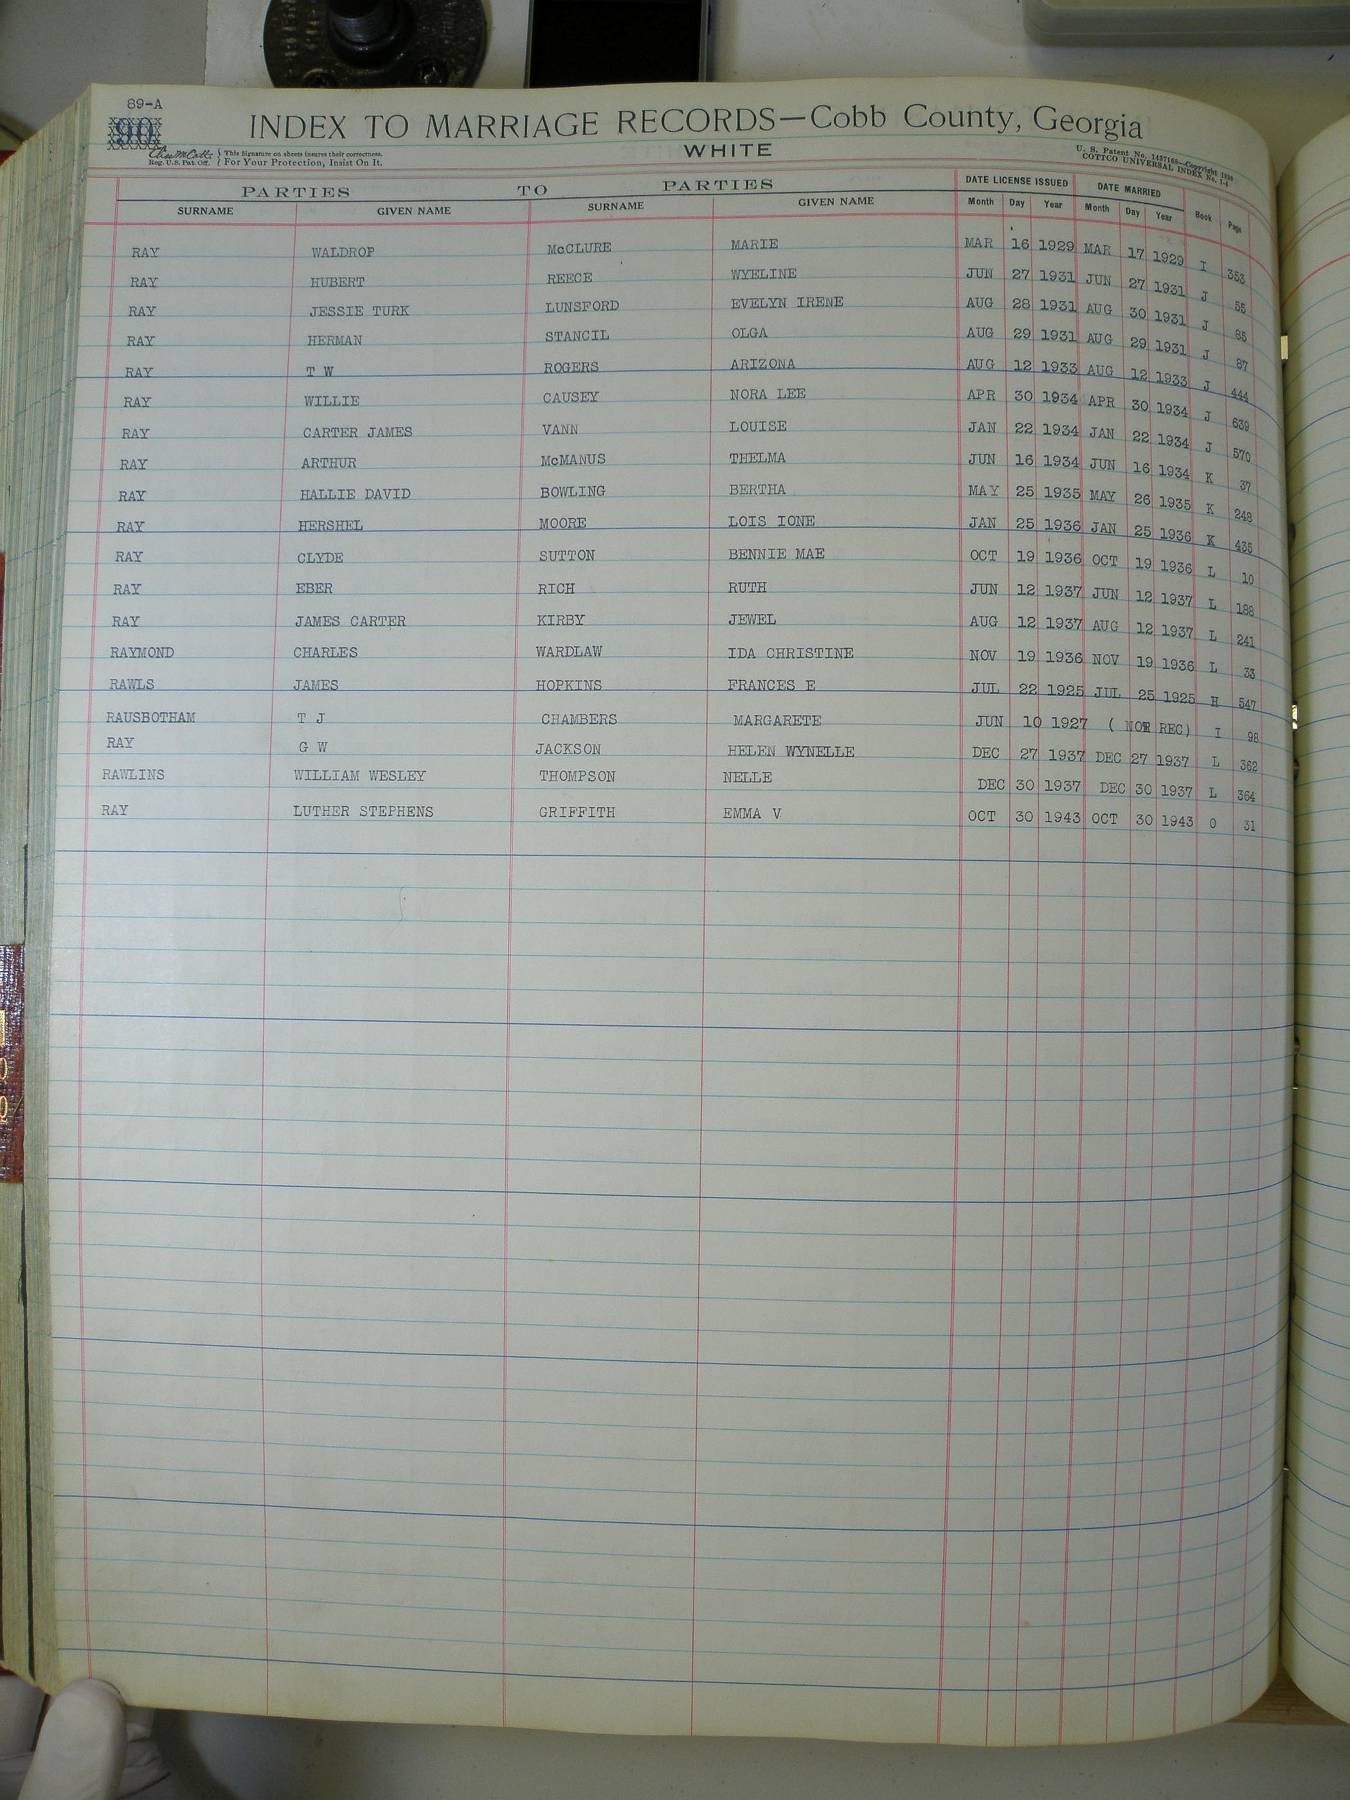 89-A
90
INDEX TO MARRIAGE RECORDS—Cobb County, Georgia
Reg. U.S. Pat. Off. This Signature on sheets insures their correctness. For Your Protection, Insist On It.
WHITE
U. S. Patent No. Copyright
COTTCO UNIVERSAL INDEX No. 1-4
PARTIES TO PARTIES DATE LICENSE ISSUED DATE MARRIED
SURNAME GIVEN NAME SURNAME GIVEN NAME Month Day Year Month Day Year Book Page
RAY WALDROP McCLURE MARIE MAR 16 1929 MAR 17 1929 I 353
RAY HUBERT REECE WYELINE JUN 27 1931 JUN 27 1931 J 55
RAY JESSIE TURK LUNSFORD EVELYN IRENE AUG 28 1931 AUG 30 1931 J 85
RAY HERMAN STANCIL OLGA AUG 29 1931 AUG 29 1931 J 87
RAY T W ROGERS ARIZONA AUG 12 1933 AUG 12 1933 J 444
RAY WILLIE CAUSEY NORA LEE APR 30 1934 APR 30 1934 J 639
RAY CARTER JAMES VANN LOUISE JAN 22 1934 JAN 22 1934 J 570
RAY ARTHUR McMANUS THELMA JUN 16 1934 JUN 16 1934 K 37
RAY HALLIE DAVID BOWLING BERTHA MAY 25 1935 MAY 26 1935 K 248
RAY HERSHEL MOORE LOIS IONE JAN 25 1936 JAN 25 1936 K 435
RAY CLYDE SUTTON BENNIE MAE OCT 19 1936 OCT 19 1936 L 10
RAY EBER RICH RUTH JUN 12 1937 JUN 12 1937 L 188
RAY JAMES CARTER KIRBY JEWEL AUG 12 1937 AUG 12 1937 L 241
RAYMOND CHARLES WARDLAW IDA CHRISTINE NOV 19 1936 NOV 19 1936 L 33
RAWLS JAMES HOPKINS FRANCES E JUL 22 1925 JUL 25 1925 H 547
RAUSBOTHAM T J CHAMBERS MARGARETE JUN 10 1927 ( NOT REC) I 98
RAY G W JACKSON HELEN WYNELLE DEC 27 1937 DEC 27 1937 L 362
RAWLINS WILLIAM WESLEY THOMPSON NELLE DEC 30 1937 DEC 30 1937 L 364
RAY LUTHER STEPHENS GRIFFITH EMMA V OCT 30 1943 OCT 30 1943 O 31